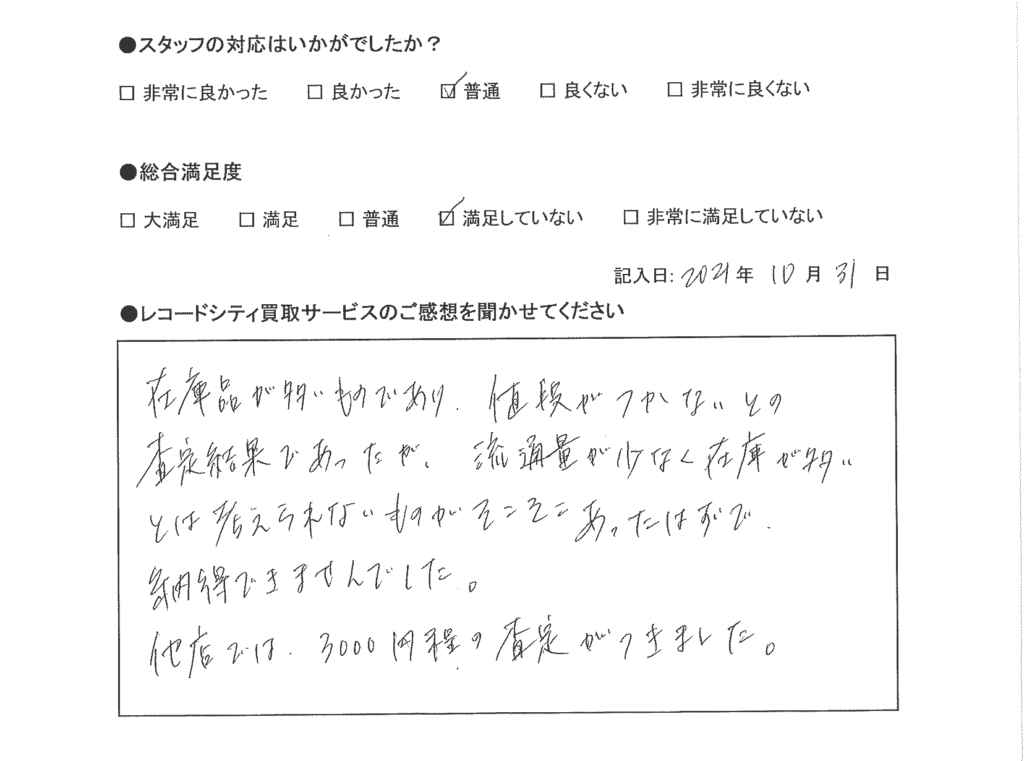 ●スタッフの対応はいかがでしたか？
□ 非常に良かった □ 良かった ☑ 普通 □ 良くない □ 非常に良くない
●総合満足度
□ 大満足 □ 満足 □ 普通 ☑ 満足していない □ 非常に満足していない
記入日: 2021 年 10 月 31 日
●レコードシティ買取サービスのご感想を聞かせてください
在庫品が多いものであり、値段がつかないとの
査定結果であったが、流通量が少なく在庫が多い
とは考えられないものがそこそこあったはずで、
納得できませんでした。
他店では、3000円程の査定がつきました。